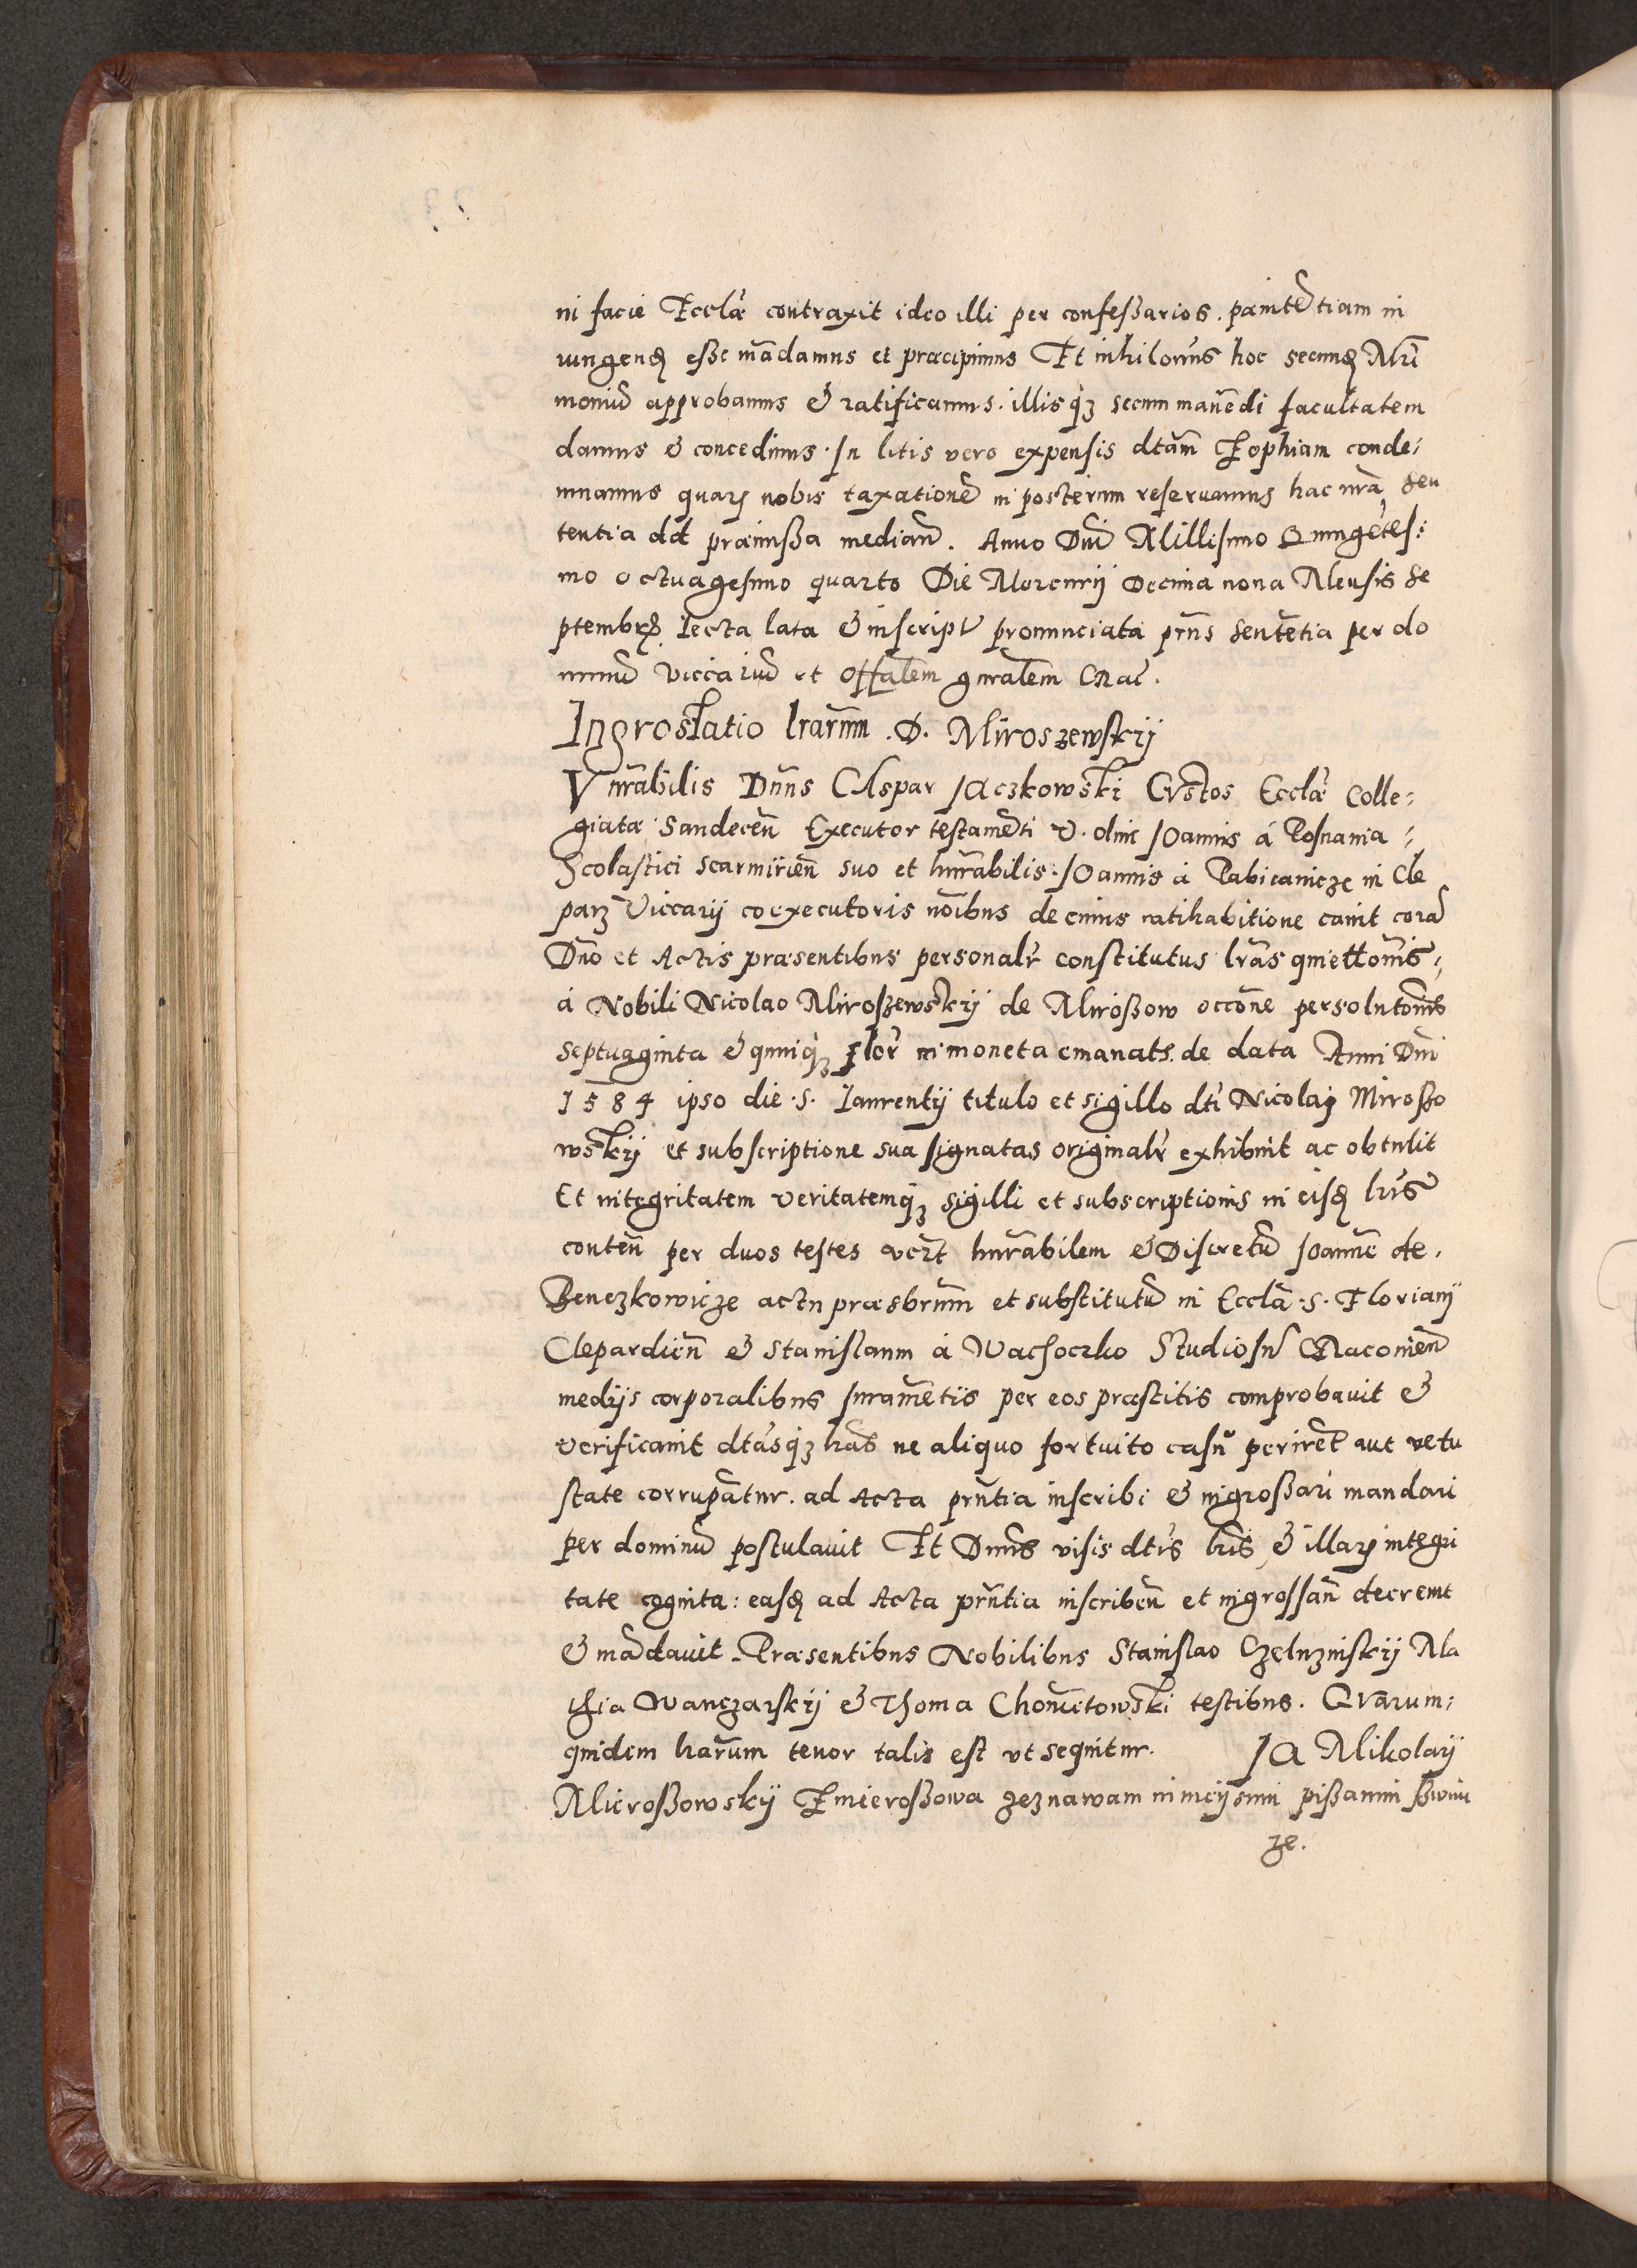 in facie Ecclæ contraxit ideo illi per confeßarios. pænitẽtiam in
iungenđ eße mãdamus et præcipimus Et nihilomĩs hoc secundũ Mrĩ
moniũ approbamus & ratificamus. illisq̢ secum manẽdi facultatem
damus & concedimus. In litis vero expensis dtam Zophiam conde,
mnamus quarũ nobis taxationẽ in posterum reservamus hac nrã sen
tentia dd præmißa median̄. Anno Dni Millesimo Quingẽtes:
mo octuagesimo quarto Die Mercurij Decima nona Mensis Se
ptembrȩ. lecta lata & in script̃ pronunciata prñs sentẽtia per do
minũ viccariũ et Offalem gnralem Crac̃.
Ingrossatio lrarum .D. Miroszewskij
Vnrabilis Dnns CAspar IAczkowski CVstos Ecclæ Colle,
giatæ Sandecen̄ Executor testamẽti v. olim IOannis á Posnania,
Scolastici Scarmirien̄ suo et hnrabilis. IOannis á Pabieanicze in Cle
parz Viccarij coexecutoris noĩbus de cuius ratihabitione cavit corã
Dno et Actis præsentibus personalr̃ constitutus lrãs quiettonis,
á Nobili Nicolao Miroszewskij de Miroßow occõne persolutonis
septuaginta & quinq̢ flor̃ in moneta emanats. de data Anni Dni
1584 ipso die .S. Laurentij titulo et sigillo dti Nicolai Miroßo
wskij et subscriptione sua signatas originalr̃ exhibuit ac obtulit
Et integritatem veritatemq̢ sigilli et subscriptionis in eisđ lris
conten̄ per duos testes vczt hnrabilem & Discretũ IOannẽ de.
Benezkowicze actu præsbrum et substitutũ in Ecclã .S. Floriani
Clepardien̄ & Stanislaum á Wachoczko Studiosũ CRacovien̄
medijs corporalibus Iuramẽtis per eos præstitis comprobavit &
verificavit dtasq̢ lras ne aliquo fortuito casu perirent aut vetu
state corrupãtur. ad Acta prñtia inscribi & ingroßari mandari
per dominũ postulavit Et Dnns visis dtis lris & illarũ integri
tate cognita: easđ ad Acta prñtia inscriben̄ et ingrossan̄ decrevit
& mãdavit. Præsentibus Nobilibus Stanislao Czeluzniskij Ma
thia Wanczarskij & Thoma Chometowski testibus. QVarum,
quidem lrarum tenor talis est vt sequitur. IA Mikolaij
Mieroßowskij Zmieroßowa zeznawam nimieijsimi pißanim ßwim
ze.